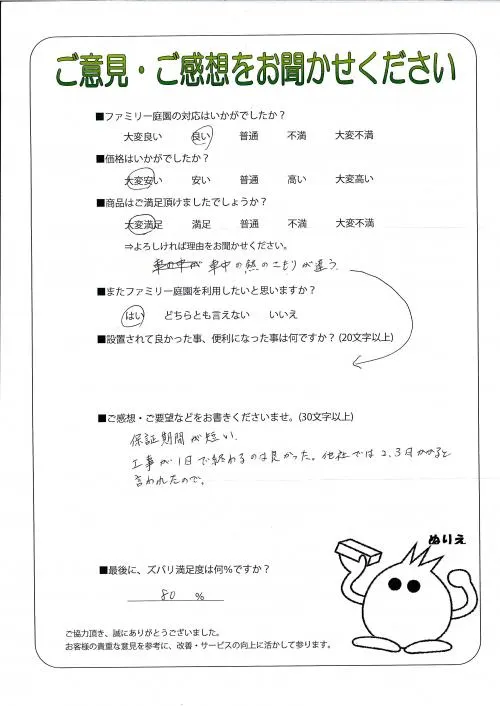 ご意見・ご感想をお聞かせください
■ファミリー庭園の対応はいかがでしたか？
大変良い 良い 普通 不満 大変不満
■価格はいかがでしたか？
大変安い 安い 普通 高い 大変高い
■商品はご満足頂けましたでしょうか？
大変満足 満足 普通 不満 大変不満
⇒よろしければ理由をお聞かせください。
車中の熱のこもりが違う
■またファミリー庭園を利用したいと思いますか？
はい どちらとも言えない いいえ
■設置されて良かった事、便利になった事は何ですか？(20文字以上)
■ご感想・ご要望などをお書きくださいませ。(30文字以上)
保証期間が短い.
工事が1日で終わるのは良かった。他社では2,3日かかると
言われたので。
ぬりえ
■最後に、ズバリ満足度は何％ですか？
80 %
ご協力頂き、誠にありがとうございました。
お客様の貴重な意見を参考に、改善・サービスの向上に活かして参ります。